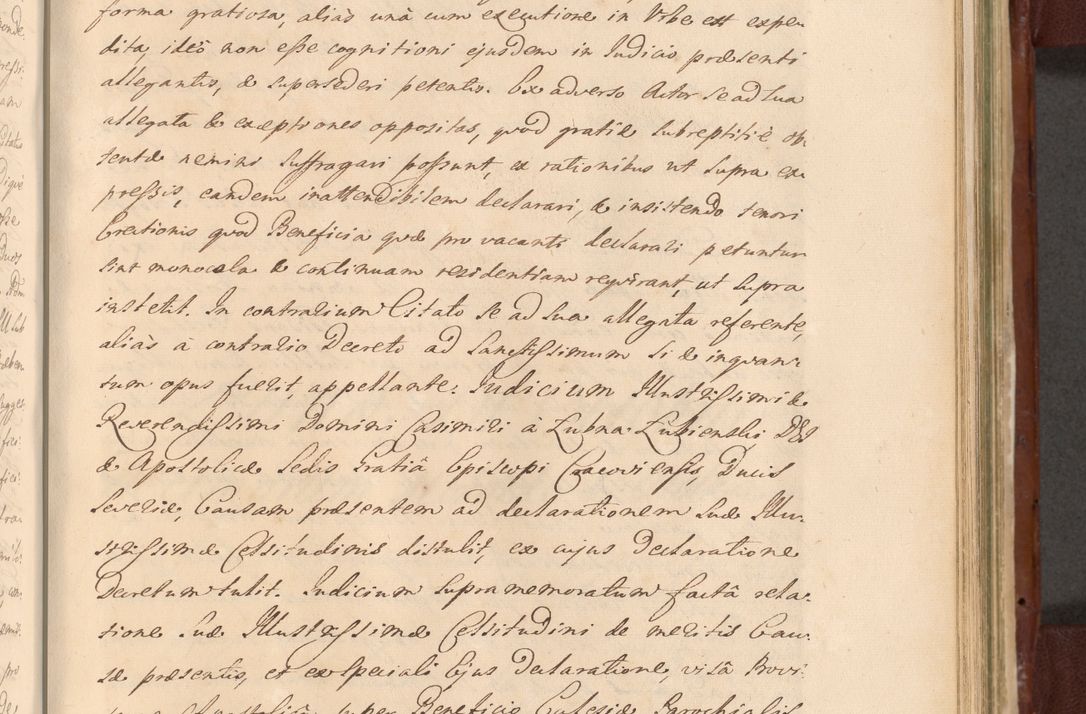 forma gratiosa, aliàs unà cum executione in Urbe est expe-
dita, ideò non esse cognitioni ejusdem in Judicio præsenti
allegantis, & supersederi petentis. Ex adverso Actor se ad sua
allegata & exceptiones oppositas, quod gratiæ subreptitiè ob-
tentæ nemini suffragari possunt, ex rationibus ut supra ex-
pressis, eandem inattendibilem declarari, & insistendo tenori
Erectionis quod Beneficia quæ pro vacanti declarari petuntur
sint monocula & continuam residentiam requirant, ut supra
institit. In contrarium Citato se ad sua allegata referente,
aliàs à contrario Decreto ad Sanctissimum si & inquan-
tum opus fuerit, appellante: Judicium Illustrissimi &
Reverendissimi Domini Casimiri à Łubna Łubienski DEI
& Apostolicæ Sedis Gratiâ Episcopi Cracoviensis, Ducis
Severiæ, Causam præsentem ad declarationem suæ Illu-
strissimæ Celsitudinis distulit, ex cujus Declaratione
Decretum tulit. Judicium supra memoratum factâ rela-
tione suæ Illustrissimæ Celsitudini de meritis Cau-
sæ præsentis, et ex speciali Ejus Declaratione, visâ Provi-
super Beneficio Ecclesiæ Parochialis